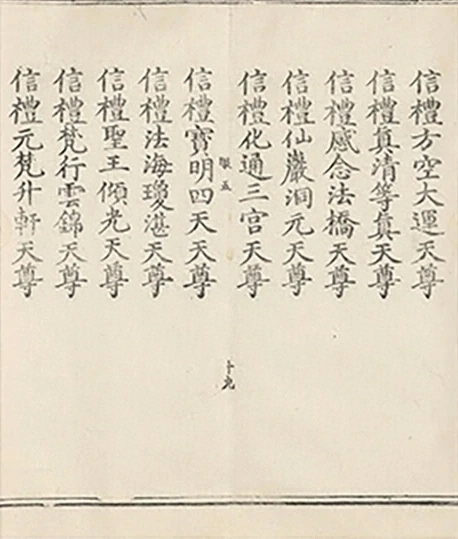 信禮方空大運天尊
信禮真清等真天尊
信禮感念法橋天尊
信禮仙巖洞元天尊
信禮化通三宮天尊
十九
信禮寶明四天天尊
信禮法海瓊湛天尊
信禮聖王傾光天尊
信禮梵行雲錦天尊
信禮元梵升軒天尊